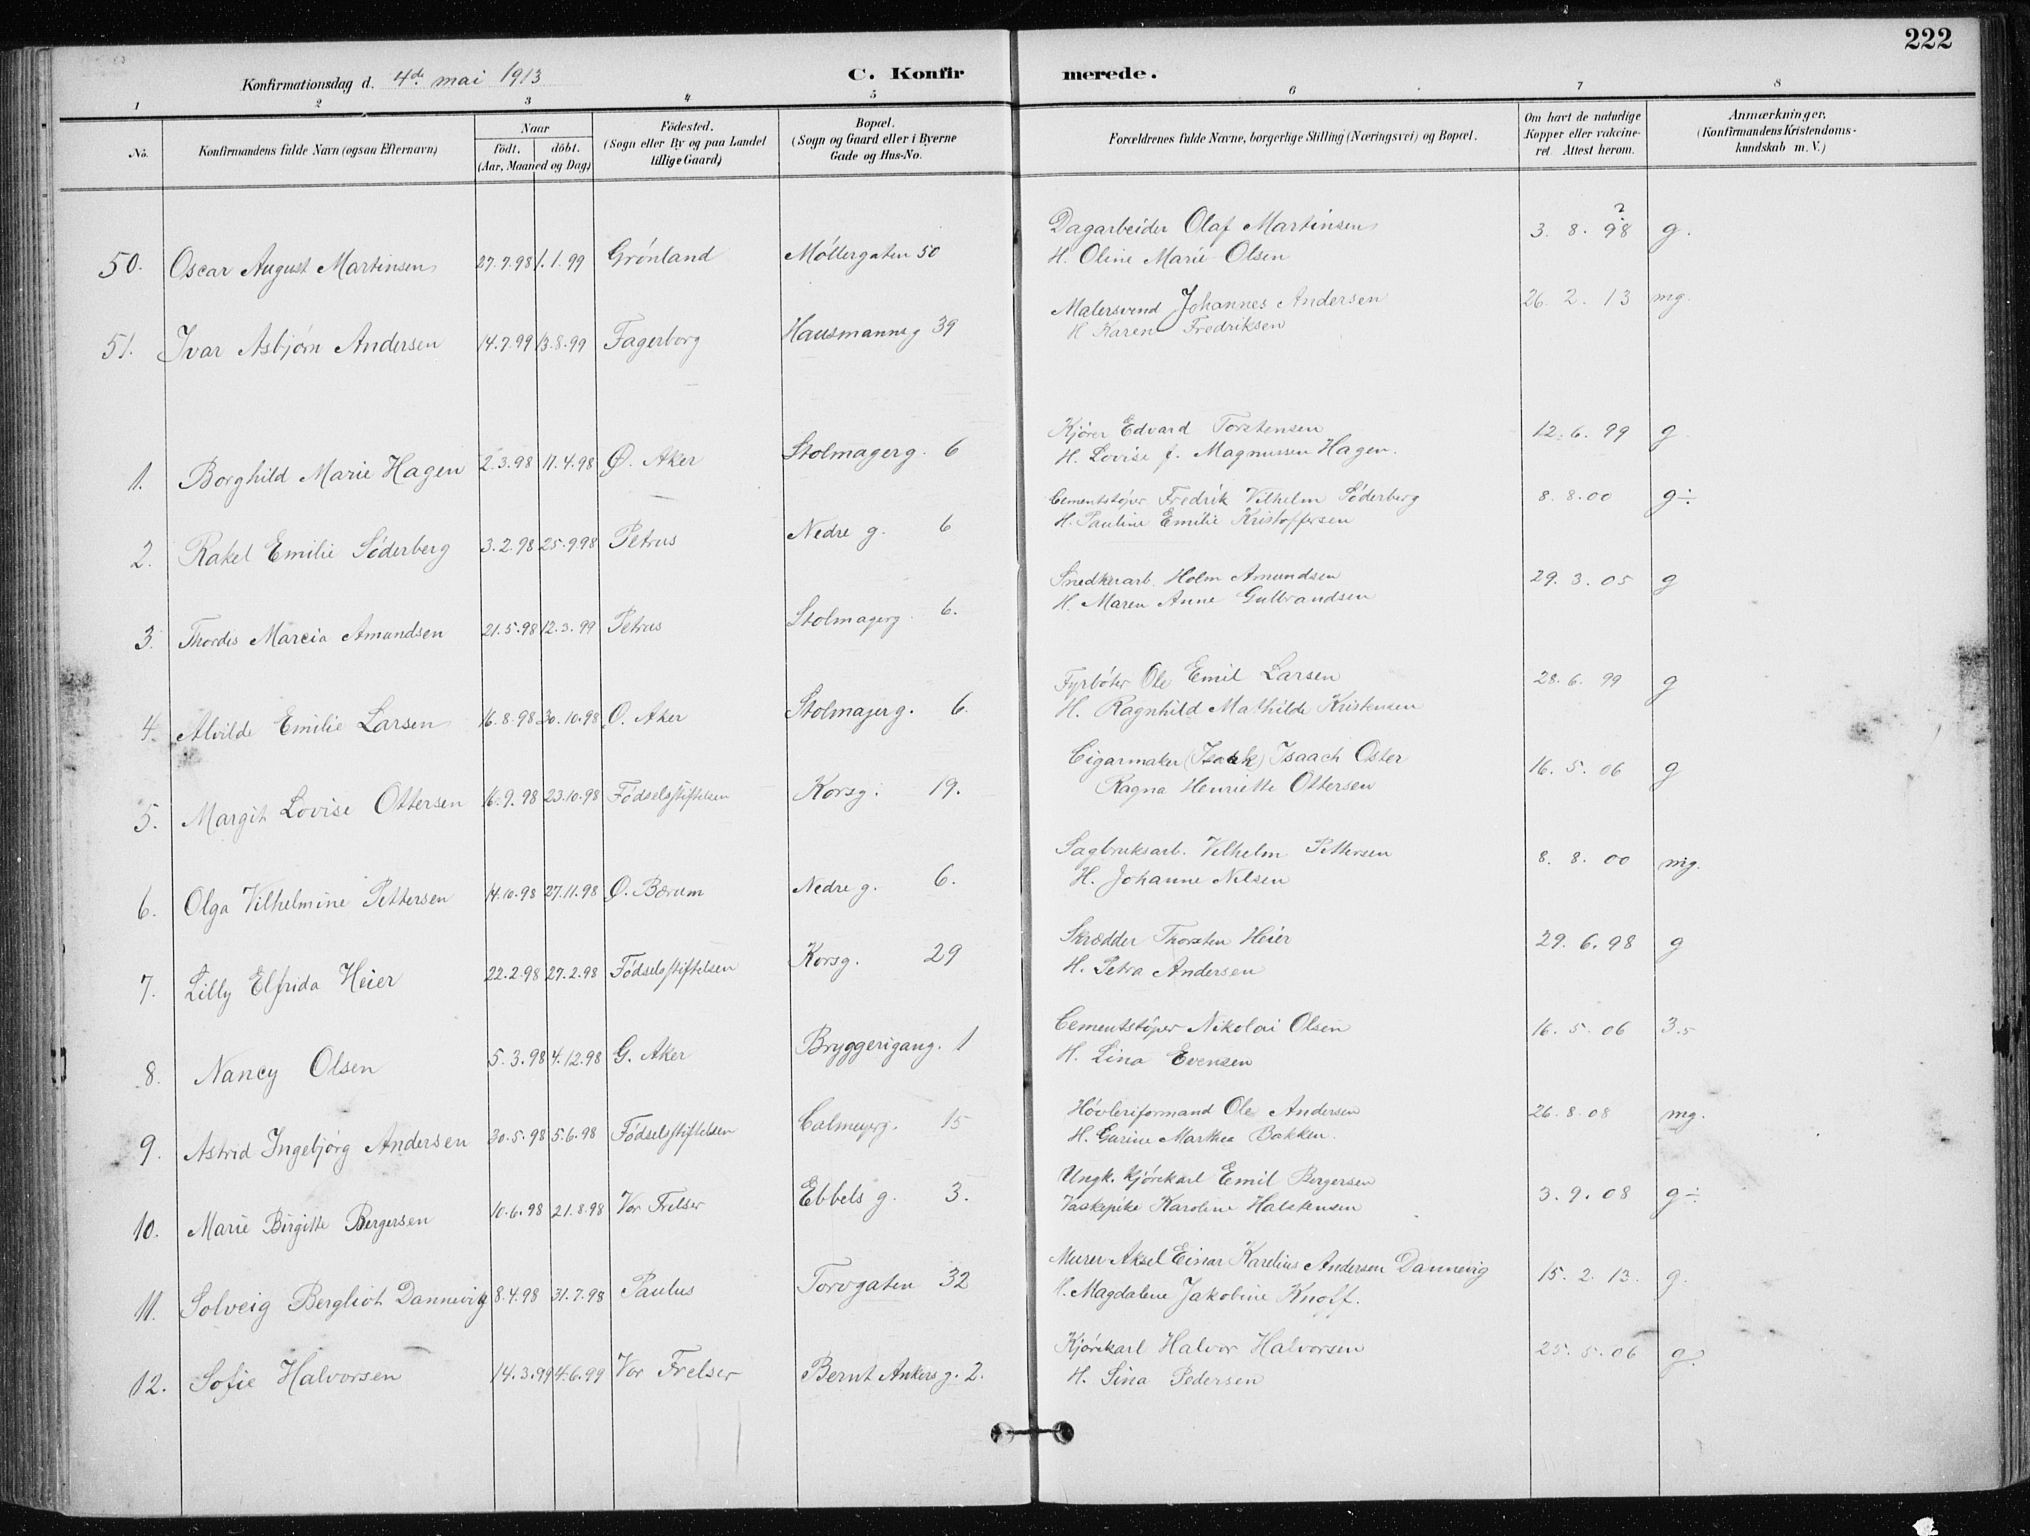 222
Konfirmationsdag d. 4de mai 1913
C. Konfirmerede.
1 2 3 4 5 6 7 8
No.
Konfirmandens fulde Navn (ogsaa Efternavn)
Naar
födt. döbt.
(Aar, Maaned og Dag)
Födested.
(Sogn eller By og paa Landet
tillige Gaard)
Bopæl.
(Sogn og Gaard eller i Byerne
Gade og Hus-No.
Forældrenes fulde Navne, borgerlige Stilling (Næringsvei) og Bopæl.
Om havt de naturlige
Kopper eller vakcine-
ret. Attest herom.
Anmærkninger.
(Konfirmandens Kristendoms-
kundskab m. V.)
50. Oscar August Martinsen 27.7.98 1.1.99 Grønland Møllergaten 50 Dagarbeider Olaf Martinsen 3. 8. 98 ? g.
H. Oline Marie Olsen
51. Ivar Asbjørn Andersen 14.7.99 13.8.99 Fagerborg Hausmannsg 39 Malersvend Johannes Andersen 26. 2. 13 mg.
H Karen Fredriksen
1. Borghild Marie Hagen 2.3.98 11.4.98 Ø. Aker Stolmagerg. 6 Kjører Edvard Torstensen 12. 6. 99 g
H. Lovise f. Magnussen Hagen.
2. Rakel Emilie Søderberg 3.2.98 25.9.98 Petrus Nedre g. 6 Cementstøper Fredrik Vilhelm Søderberg 8. 8. 00 g÷
H. Pauline Emilie Kristoffersen
3. Thordis Marcia Amundsen 21.5.98 12.3.99 Petrus Stolmagerg. 6. Snedkerarb. Holm Amundsen 29. 3. 05 g
H. Maren Anne Gulbrandsen
4. Alvilde Emilie Larsen 16.8.98 30.10.98 Ø. Aker Stolmagerg. 6. Fyrbøter Ole Emil Larsen 28. 6. 99 g
H. Ragnhild Mathilde Kristensen
5. Margit Lovise Ottersen 16.9.98 23.10.98 Fødselsstiftelsen Korsg. 19. Cigarmaker (Isaak) Isaach Oster 16. 5. 06 g
Ragna Henriette Ottersen
6. Olga Vilhelmine Pettersen 14.10.98 27.11.98 Ø. Bærum Nedre g. 6. Sagbruksarb. Vilhelm Pettersen 8. 8. 00 mg.
H. Johanne Nilsen
7. Lilly Elfrida Heier 22.2.98 27.2.98 Fødselsstiftelsen Korsg. 29 Skrædder Thorsten Heier 29. 6. 98 g
H. Petra Andersen
8. Nancy Olsen 5.3.98 4.12.98 G. Aker Bryggerigang. 1 Cementstøper Nikolai Olsen 16. 5. 06 3.5
H. Lina Evensen
9. Astrid Ingebjørg Andersen 30.5.98 5.6.98 Fødselsstiftelsen Calmeyerg. 15 Høvleriformand Ole Andersen 26. 8. 08 mg.
H. Gurine Marthea Bakken.
10. Marie Birgitte Bergersen 10.6.98 21.8.98 Vor Frelser Ebbels g. 3. Ungk. kjørekarl Emil Bergersen 3. 9. 08 g÷
Vaskepike Karoline Halstensen
11. Solveig Bergliot Dannevig 8.4.98 31.7.98 Paulus Torvgaten 32 Murer Aksel Einar Karelius Andersen Dannevig 15. 2. 13. g.
H. Magdalene Jakobine Knoff.
12. Sofie Halvorsen 14.3.99 4.6.99 Vor Frelser Bernt Ankers g. 2. Kjørekarl Halvor Halvorsen 25. 5. 06 g.
H. Lina Pedersen